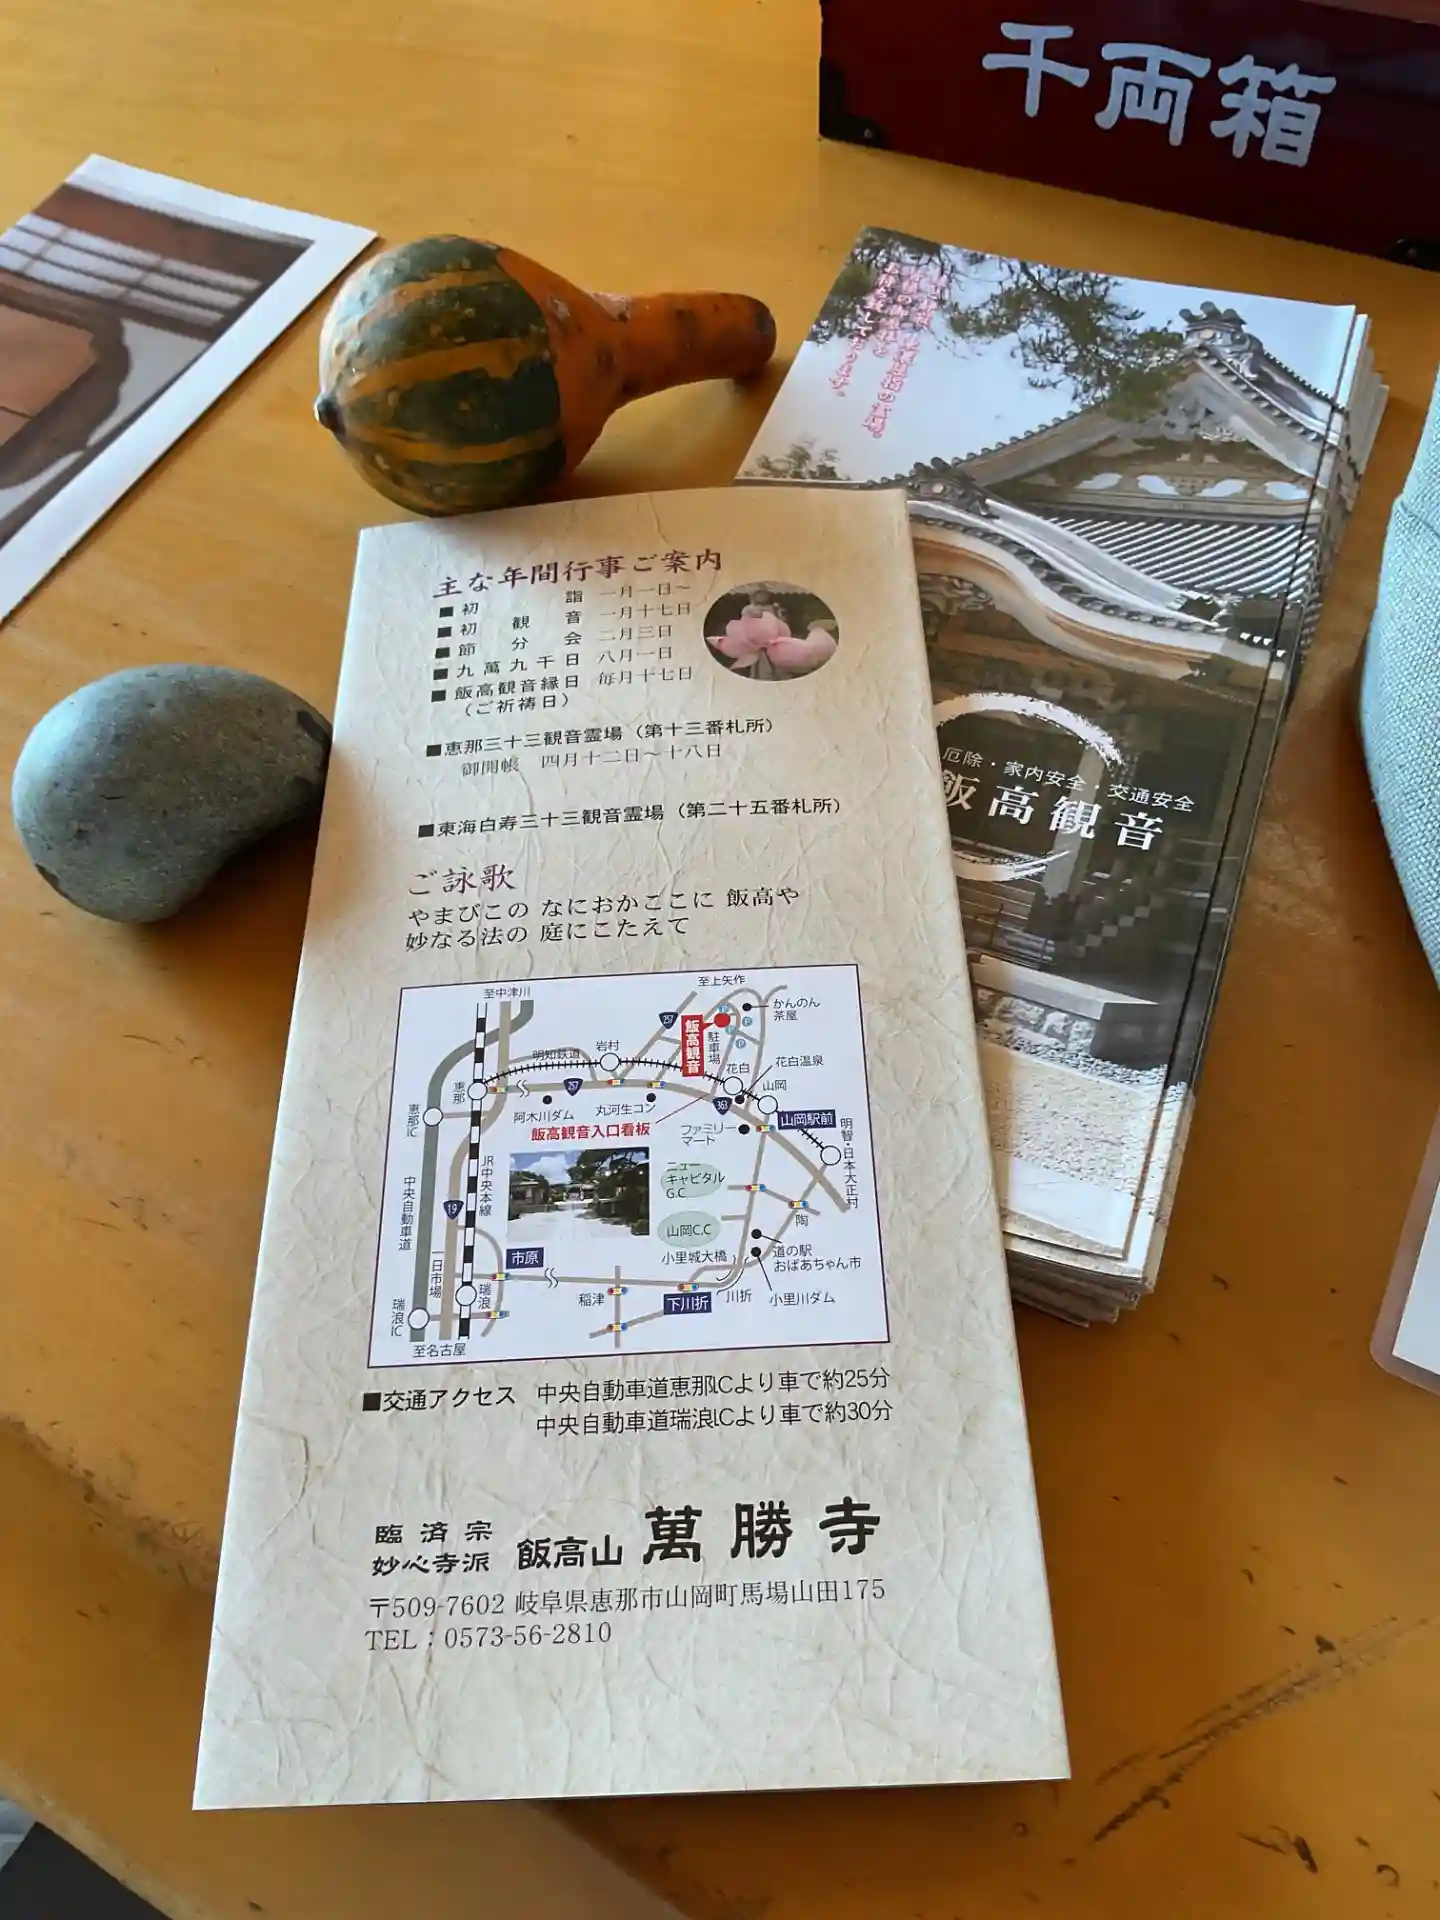 千両箱
主な年間行事ご案内
■初詣 一月一日～
■初観音 一月十七日
■節分会 二月三日
■九萬九千日 八月一日
■飯高観音縁日 毎月十七日
（ご祈祷日）
■恵那三十三観音霊場（第十三番札所）
御開帳 四月十二日～十八日
■東海白寿三十三観音霊場（第二十五番札所）
ご詠歌
やまびこの なにおかここに 飯高や
妙なる法の 庭にこたえて
至中津川
至上矢作
かんのん
茶屋
257
飯高観音
駐車場
P
P
P
P
岩村
明知鉄道
花白
花白温泉
山岡
恵那
257
363
恵那IC
阿木川ダム
丸河生コン
飯高観音入口看板
ファミリー
マート
山岡駅前
明智・日本大正村
JR中央本線
中央自動車道
19
ニュー
キャピタル
G.C
山岡C.C
陶
小里城大橋
道の駅
おばあちゃん市
市原
一日市場
瑞浪
瑞浪IC
稲津
下川折
川折
小里川ダム
至名古屋
■交通アクセス 中央自動車道恵那ICより車で約25分
中央自動車道瑞浪ICより車で約30分
臨済宗
妙心寺派
飯高山 萬勝寺
〒509-7602 岐阜県恵那市山岡町馬場山田175
TEL：0573-56-2810
厄除・家内安全・交通安全
飯高観音